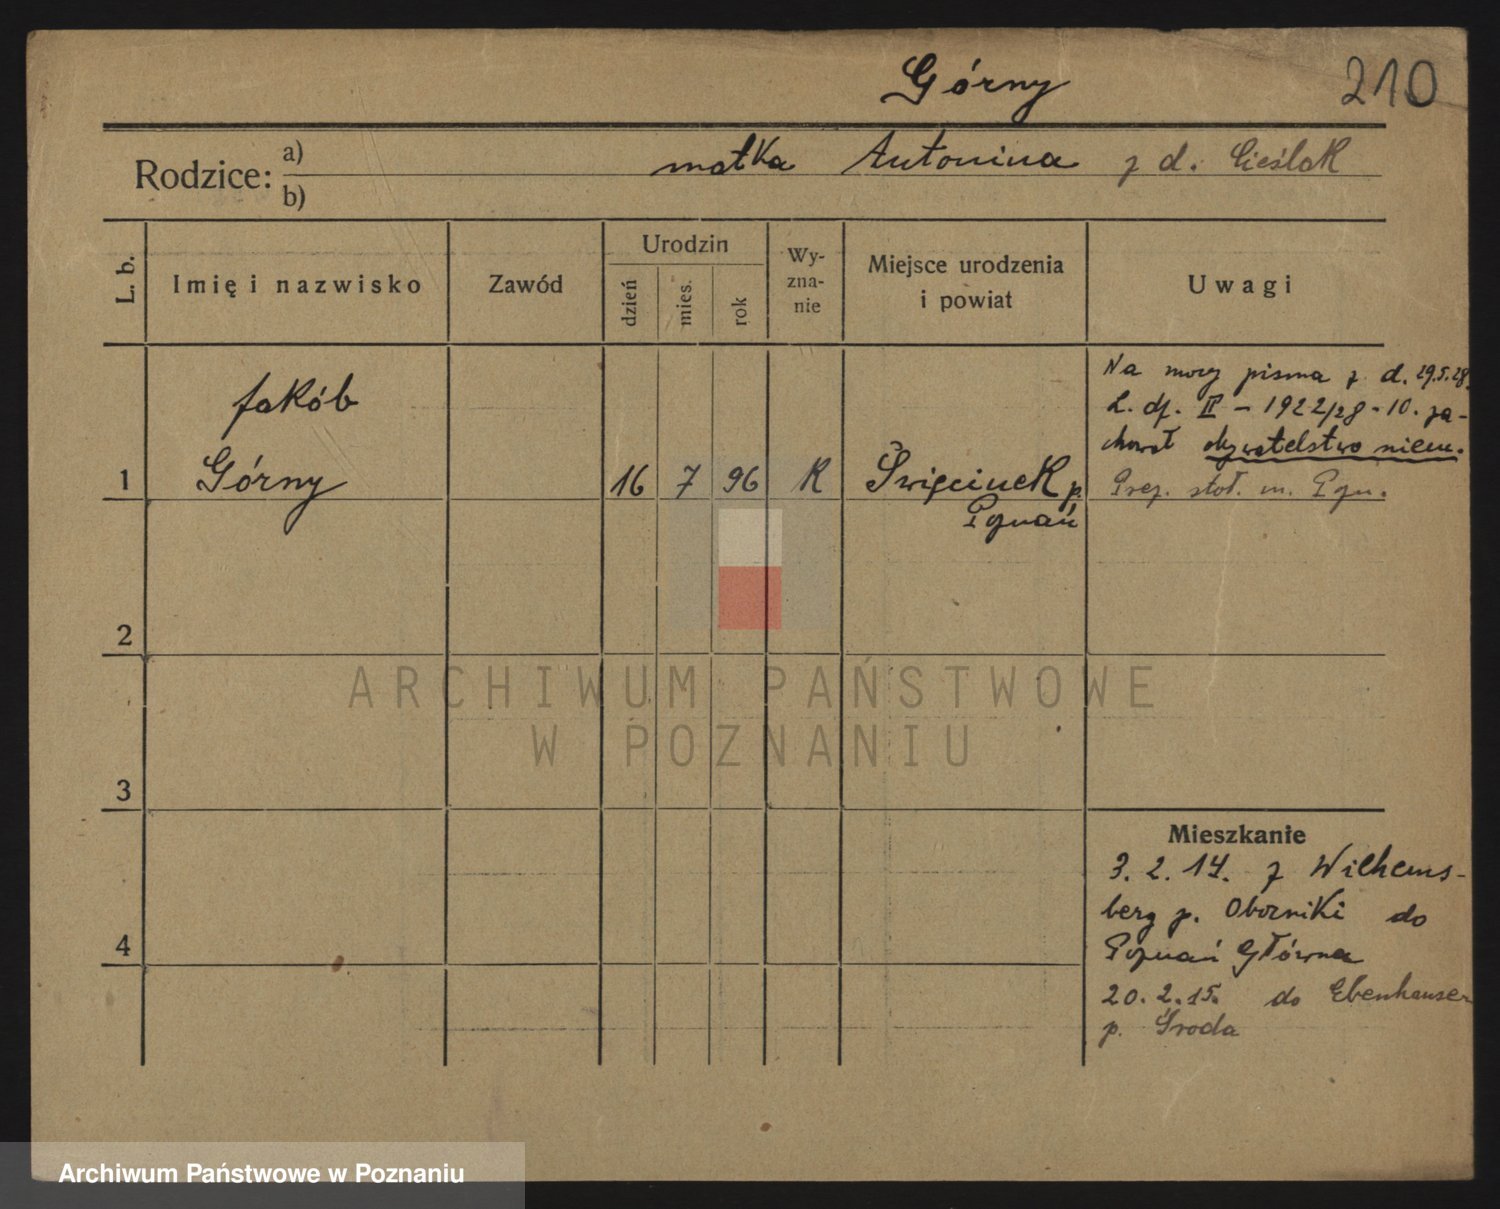 Górny
210
Rodzice: a) matka Antonina z d. Cieślak
b)
L. b.
Imię i nazwisko
Zawód
Urodzin
dzień
mies.
rok
Wy-
zna-
nie
Miejsce urodzenia
i powiat
Uwagi
1
Jakób
Górny
16 7 96 K
Święcinek p.
Poznań
Na mocy pisma z d. 29.5.28.
L. dz. II - 1922/28 - 10. za-
chował obywatelstwo niem.
Prez. stoł. m. Pozn.
2
3
4
Mieszkanie
3. 2. 14. z Wilhelms-
berg p. Oborniki do
Poznań Główna
20. 2. 15. do Ebenhausen
p. Środa
ARCHIWUM PAŃSTWOWE
W POZNANIU
Archiwum Państwowe w Poznaniu